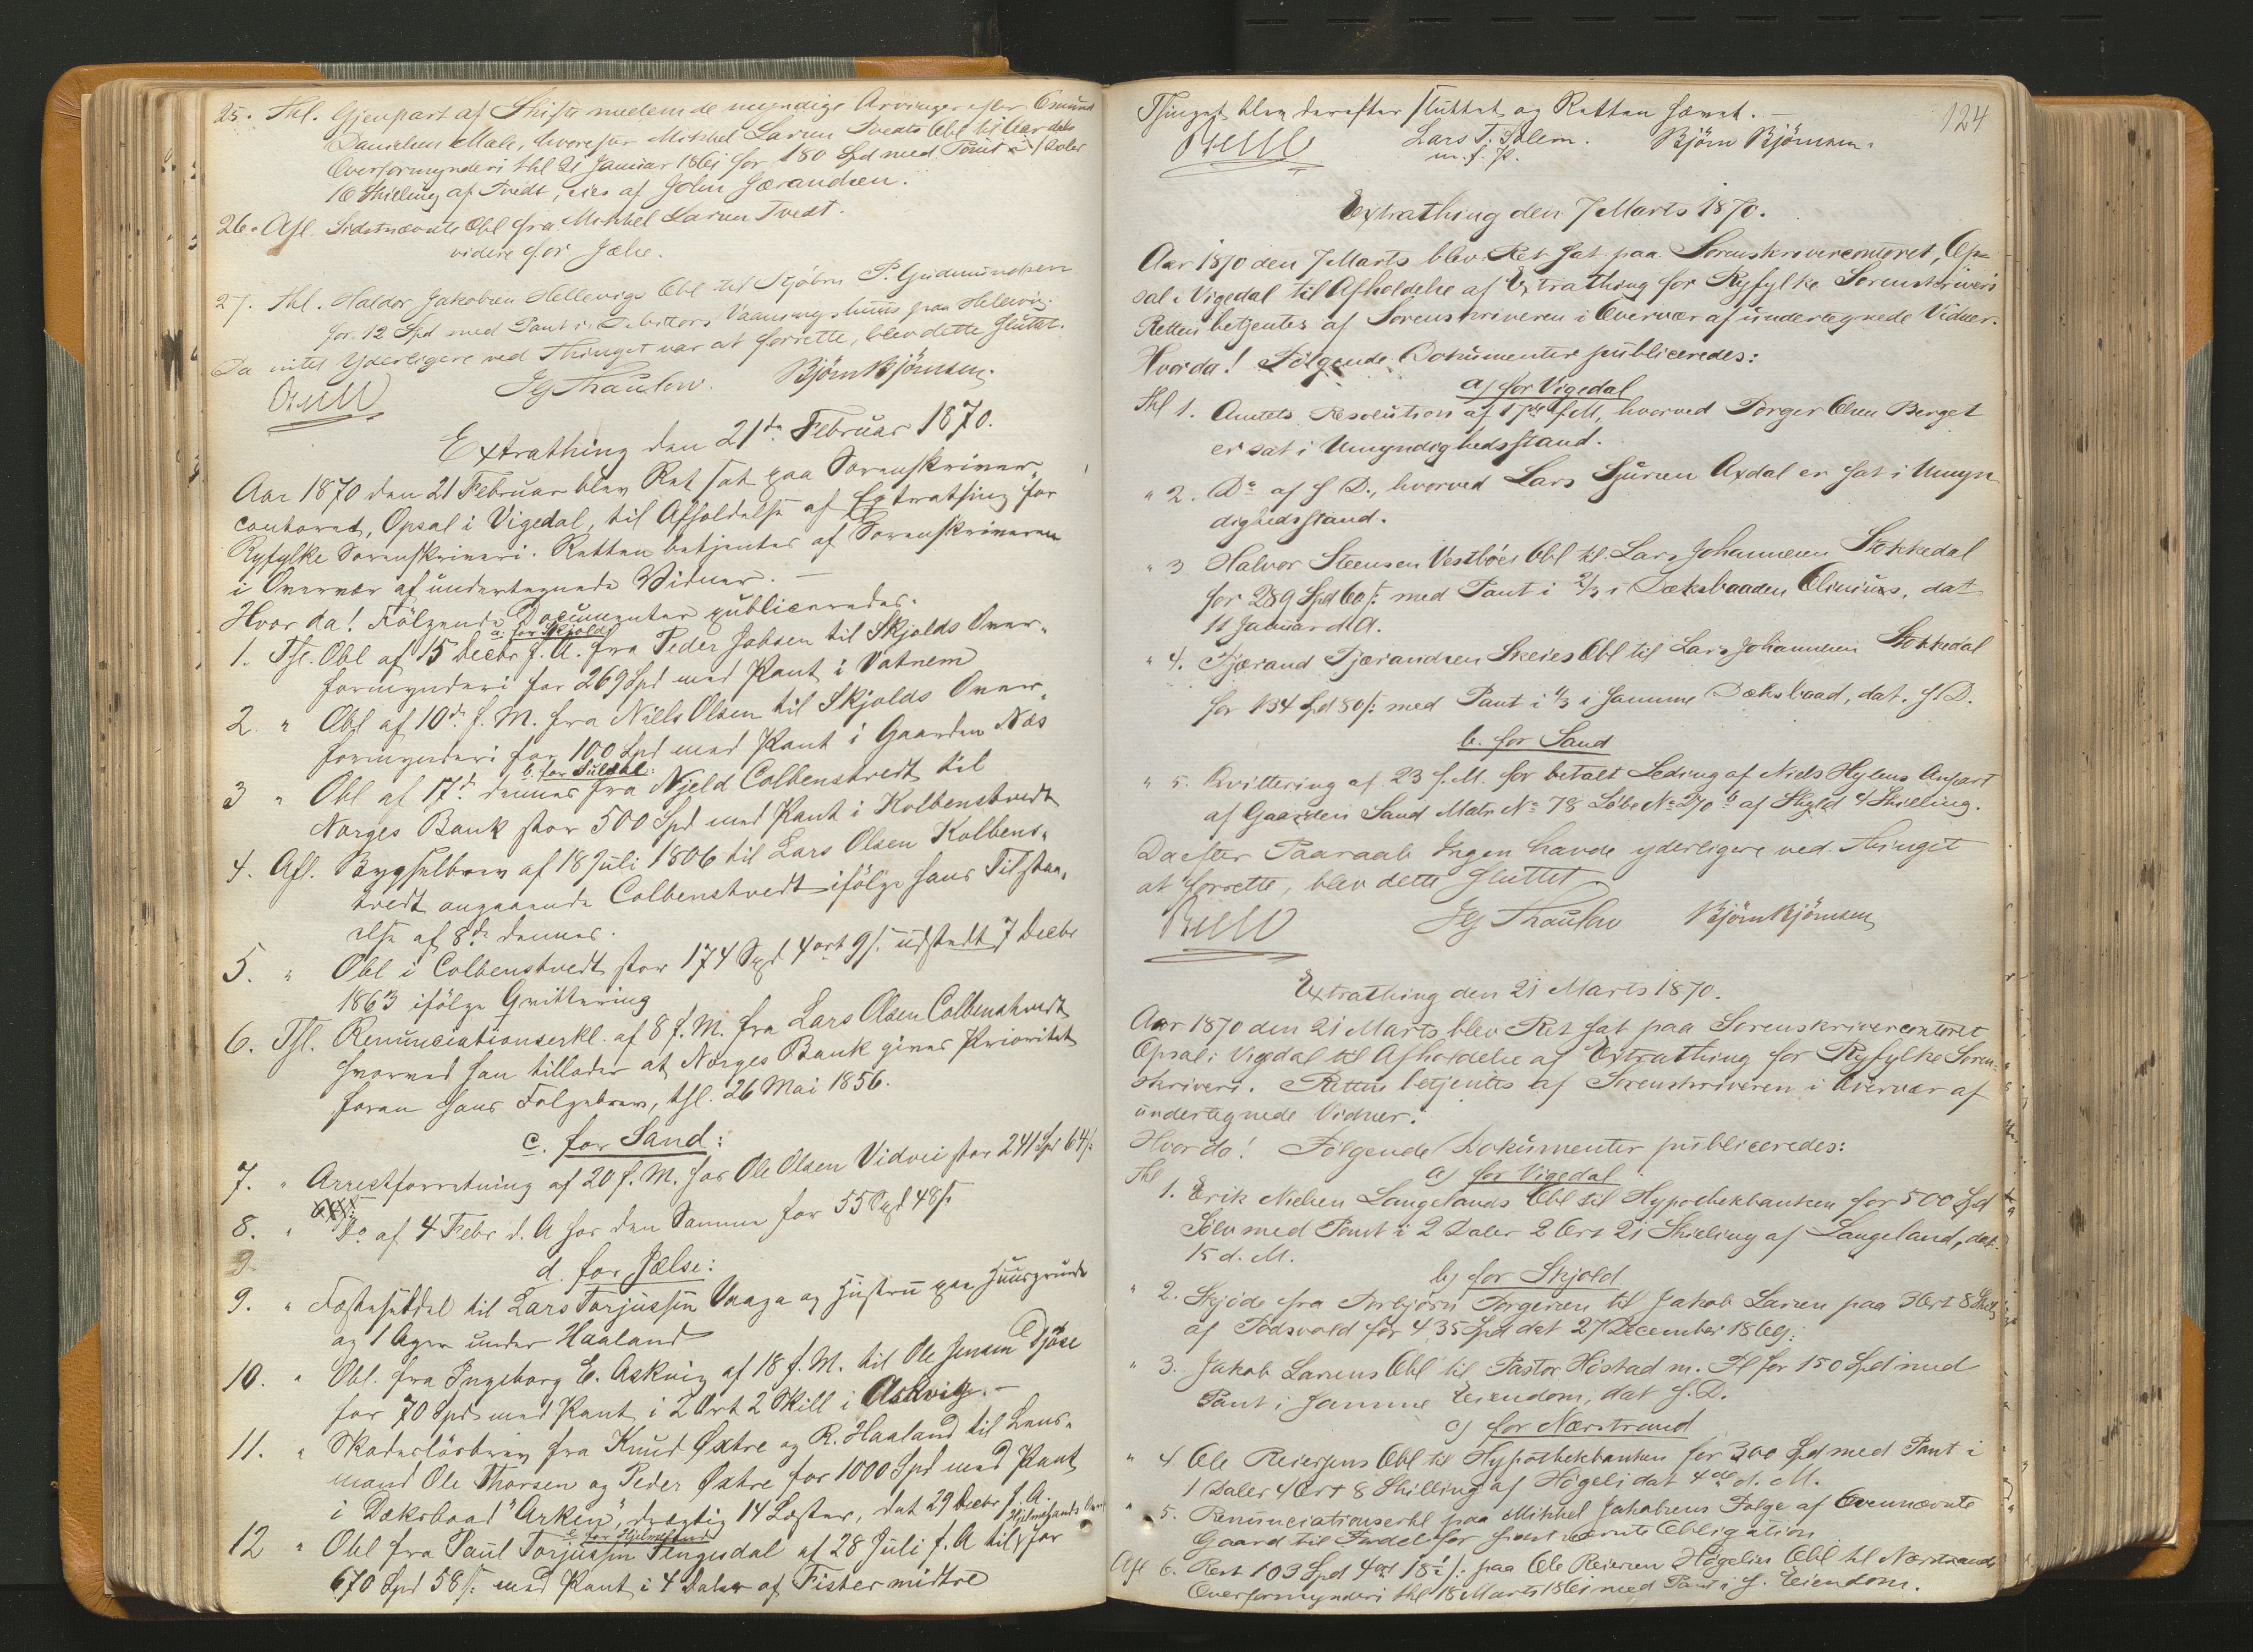 25. Thl. Gjenpart af Skifte mellem de myndige Arvinger efter
Danielsen Mæle, hvorefter Mikkel Larsen Tvedts Obl til Aardals
Overformynderi thl 21 Januar 1861 for 180 Spd med Pant i 1 Daler
16 Skilling af Tvedt, eies af John
26. Afl. Sidstnævnte Obl fra Mikkel Larsen Tvedt.
videre for Jælse.
27. Thl. Haldor Jakobsen Hellevigs Obl til P. Gudmundsen
for 12 Spd med Pant i Debitors Vaaningshuus paa Helevig.
Da intet Yderligere ved Thinget var at forrette, blev dette sluttet.
JG Thaulow. Björn Björnsen.
Extrathing den 21de Februar 1870.
Aar 1870 den 21 Februar blev Ret sat paa Sorenskriver-
contoret, Opsal i Vigedal, til Afholdelse af Extrathing for
Ryfylke Sorenskriveri. Retten betjentes af Sorenskriveren
i Overvær af undertegnede Vidner. —
Hvor da! Fölgende Documenter publiceredes.
a. for Skjold
1. Thl. Obl af 15 Decbr f. A. fra Peder Jobsen til Skjolds Over-
formynderi for 269 Spd med Pant i Vatnem
2. " Obl af 10de f. M. fra Niels Olsen til Skjolds Over-
formynderi for 100 Spd med Pant i Gaarden Næs
b. for Suldal:
3 " Obl af 17de dennes fra Njeld Colbenstvedt til
Norges Bank stor 500 Spd med Pant i Kolbenstvedt
4. Afl. Bygselbrev af 18 Juli 1806 til Lars Olsen Kolbens-
tvedt angaaende Colbenstvedt ifölge hans Tilstaa-
else af 8de dennes.
5. " Obl i Colbenstvedt stor 174 Spd 4 ort 9 s. udstedt 7 Decbr
1863 ifölge Qvittering
6. Thl. Renunciationserkl. af 8 f. M. fra Lars Olsen Colbenstvedt
hvorved han tillader at Norges Bank gives Prioritet
foran hans Folgebrev, thl. 26 Mai 1856.
c. for Sand:
7. " Arrestforretning af 20 f. M. hos Ole Olsen Vidvei stor 241 Spd 64 s:
8. " Do af 4 Febr d. A hos den Samme for 55 Spd 48 s
d. for Jælse:
9. " Fæsteseddel til Lars Torjussen Vaaga og Hustru paa Huusgrund
og 1 Ager under Haaland
10. " Obl. fra Ingeborg E. Askvig af 18 f. M. til Ole Jensen Tjöse
for 70 Spd med Pant i 2 Ort 2 Skill i Askvig. —
11. " Skadeslösbrev fra Knud Østre og R. Haaland til Lens-
mand Ole Thorsen og Peder Østre for 1000 Spd med Pant
i Dæksbaad "Arken", drægtig 14 Læster, dat 29 Decbr f. A.
e for Hjelmeland
12 " Obl fra Paul Torjussen Tengesdal af 28 Juli f. A til Hjelmelands for
670 Spd 58 s: med Pant i 4 Daler af Fister midtre
124
Thinget blev derefter sluttet og Retten hævet. —
Lars T. Solem. Björn Björnsen.
m. f. P.
Extrathing den 7 Marts 1870.
Aar 1870 den 7 Marts blev Ret sat paa Sorenskrivercontoret, Op-
sal i Vigedal til Afholdelse af Extrathing for Ryfylke Sorenskriveri
Retten betjentes af Sorenskriveren i Overvær af undertegnede Vidner.
Hvor da! Fölgende Dokumenter publiceredes:
a) for Vigedal
Thl 1. Amtets Resolution af 17de f. M, hvorved Torger Olsen Berget
er sat i Umyndighedsstand.
" 2. Do af s D., hvorved Lars Sjursen Axdal er sat i Umyn
dighedsstand.
" 3 Halvor Steensen Vestböes Obl til Lars Johannesen Stokkedal
for 289 Spd 60 s: med Pant i 2/3 i Dæksbaaden dat
11 Januar d. A.
" 4. Tjærand Tjærandsen Skeies Obl til Lars Johannesen Stokkedal
for 134 Spd 80 s: med Pant i 1/3 i samme Dæksbaad, dat. s D.
b. for Sand
" 5. Kvittering af 23 f. M. for betalt Leding af Niels Hylens Anpart
af Gaarden Sand Matr No 78 Löbe No 270 b af Skyld 4 Skilling.
Da efter Paaraab Ingen havde yderligere ved Thinget
at forrette, blev dette sluttet
JG Thaulow Björn Björnsen
Extrathing den 21 Marts 1870.
Aar 1870 den 21 Marts blev Ret sat paa Sorenskrivercontoret
Opsal i Vigdal til Afholdelse af Extrathing for Ryfylke Soren-
skriveri. Retten betjentes af Sorenskriveren i Overvær af
undertegnede Vidner.
Hvor da! Fölgende Dokumenter publiceredes:
a) for Vigedal
Thl 1. Erik Nielsen Langelands Obl til Hypothekbanken for 500 Spd
Sölv med Pant i 2 Daler 2 Ort 21 Skilling af Langeland, dat.
15 d. M.
b) for Skjold
" 2. Skjöde fra Torbjörn Torgersen til Jakob Larsen paa 3 Ort 8 Skill
af Todsvold for 435 Spd dat 27 December 1869:
" 3. Jakob Larsens Obl til Pastor Höstad m. Fl for 150 Spd med
Pant i samme Eiendom, dat s. D.
c) for Nærstrand
" 4 Ole Reiersens Obl til Hypothekbanken for 300 Spd med Pant i
1 Daler 4 Ort 8 Skilling af Högeli dat 4de d. M.
" 5. Renunciationserkl paa Mikkel Jakobsens Folge af Ovennævnte
Gaard til Fordel for sidstnævnte Obligation
Afl 6. Rest 103 Spd 4 ort 18 1/2 s: paa Ole Reiersen Högelies Obl til Nærstrands
Overformynderi thl 18 Marts 1861 med Pant i s. Eiendom.